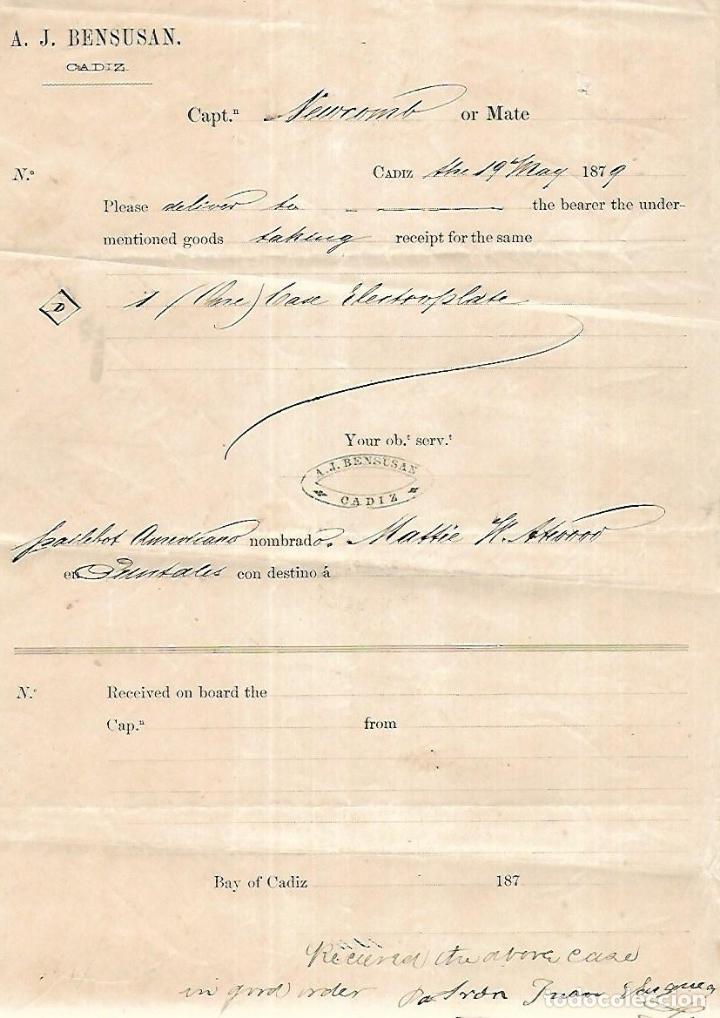 A. J. BENSUSAN.
CADIZ.
Capt.ⁿ Newcomb or Mate
N.º CADIZ the 19 May 1879
Please deliver to — — the bearer the under-
mentioned goods taking receipt for the same
D 1 (One) Case Electroplate
Your ob.ᵗ serv.ᵗ
A. J. BENSUSAN
CADIZ
pailebot Americano nombrado. Mattie W. Atwood
en Puntales con destino á
N.º Received on board the
Cap.ⁿ from
Bay of Cadiz 187
Received the above case
in good order Patron Juan
todocoleccion